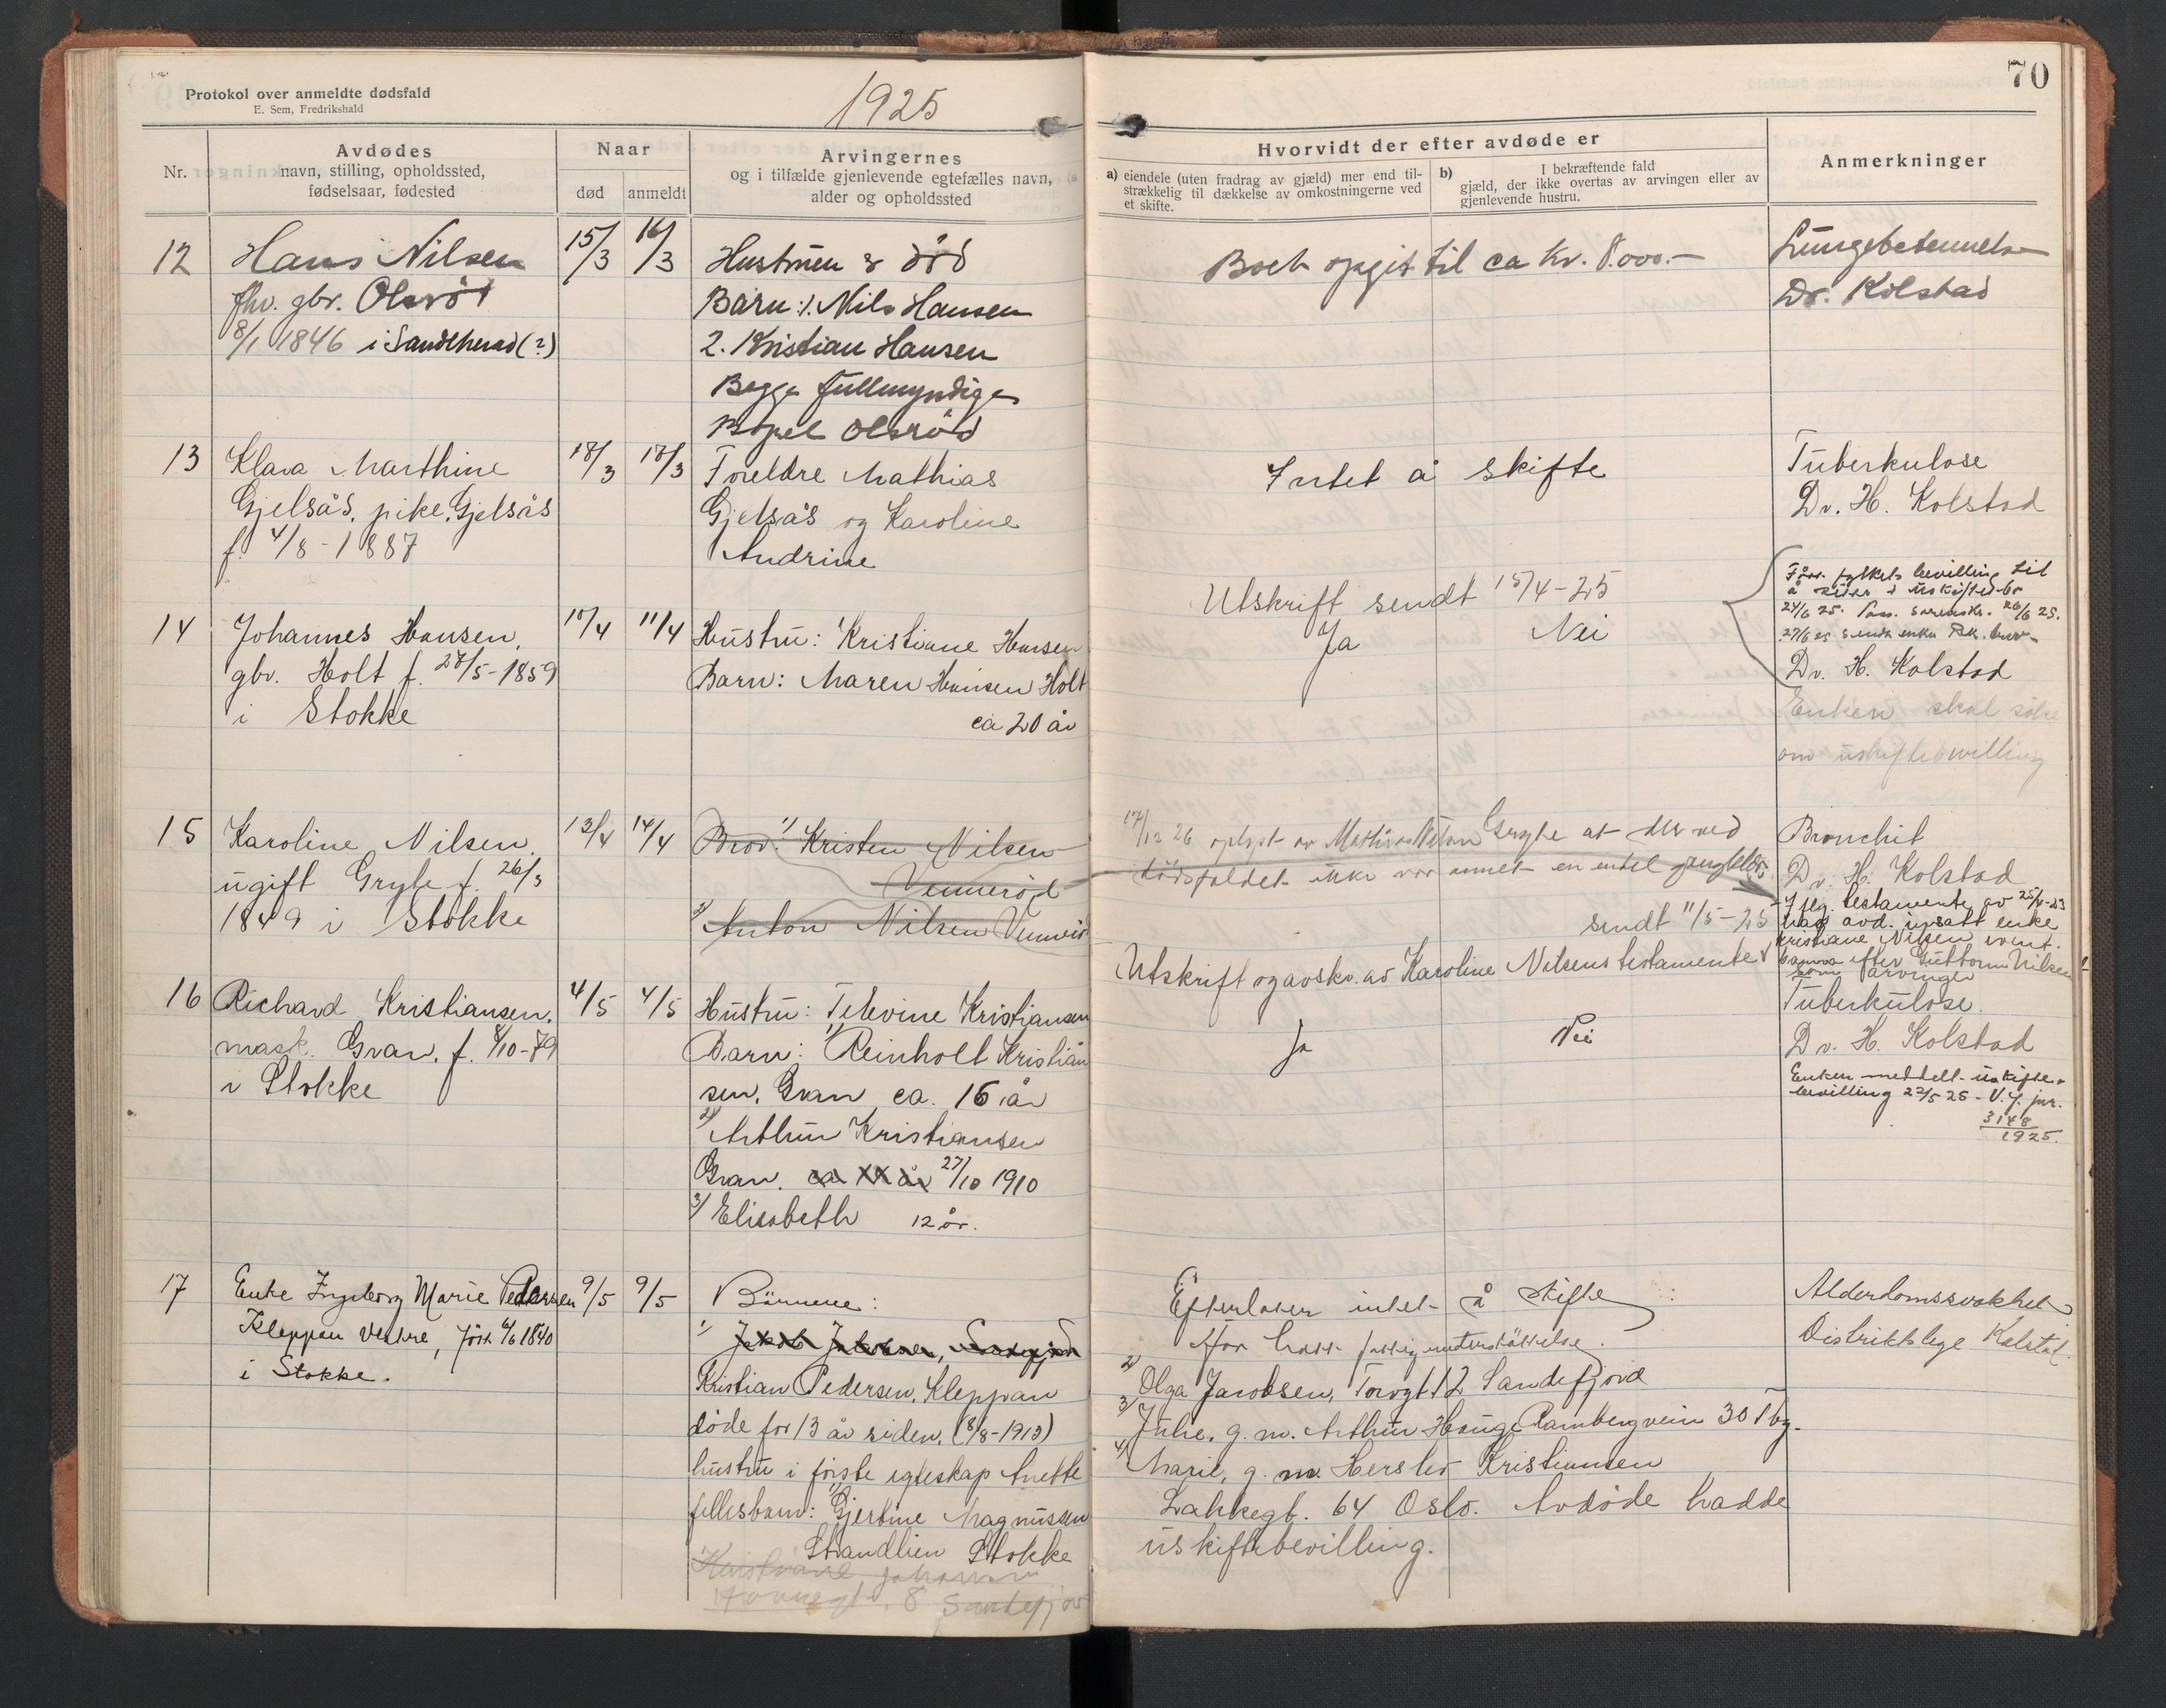 Protokol over anmeldte dødsfald
E. Sem, Fredrikshald
1925
70
Nr.
Avdødes
navn, stilling, opholdssted,
fødselsaar, fødested
Naar
død
anmeldt
Arvingernes
og i tilfælde gjenlevende egtefælles navn,
alder og opholdssted
Hvorvidt der efter avdøde er
a) eiendele (uten fradrag av gjæld) mer end til-
strækkelig til dækkelse av omkostningerne ved
et skifte.
b) I bekræftende fald
gjæld, der ikke overtas av arvingen eller av
gjenlevende hustru.
Anmerkninger
12
Hans Nilsen
fhv. gbr. Olsröd
8/1 1846 i Sandeherad (?)
15/3
16/3
Hustruen er död
Barn: 1. Nils Hansen
2. Kristian Hansen
Begge fullmyndige
Bopel Olsröd
Boet opgit til ca kr. 8.000.-
Lungebetennelse
Dr. Kolstad
13
Klara Marthine
Gjelsås, pike, Gjelsås
f. 4/8-1887
18/3
18/3
Foreldre Mathias
Gjelsås og Karoline
Andrine
Intet å skifte
Tuberkulose
Dr. H. Kolstad
14
Johannes Hansen,
gbr. Holt f. 28/5-1859
i Stokke
10/4
11/4
Hustru: Kristiane Hansen
Barn: Maren Hansen Holt
ca 20 år
Utskrift sendt 15/4-25
Ja
Nei
fylkets bevilling til
å sidde i uskiftet bo
24/6 25. sorensk. 26/6 25.
27/6 25 sendt enken
Dr. H. Kolstad
Enken skal söke
om uskiftebevilling
15
Karoline Nilsen,
ugift Gryte f. 26/3
1849 i Stokke
13/4
14/4
Bror: 1) Kristen Nilsen
Vennerød
2) Anton Nilsen Vennerød
17/12 26 oplyst av Mathias Nilsen Gryte at der ved
dödsfaldet ikke var annet en endel
sendt 11/5-25
Bronchit
Dr. H. Kolstad
Iflg. testamente av
had avd. insatt enke
Kristiane Nilsen event.
barna efter Guttorm Nilsen
som arvinger
Utskrift og avskr. av Karoline Nilsens testamente
16
Richard Kristiansen,
mask. Gran, f. 8/10-79
i Stokke
4/5
4/5
Hustru: Televine Kristiansen
Barn: 1) Reinholt Kristian
sen, Gran ca. 16 år
2) Arthur Kristiansen
Gran. 27/10 1910
3) Elisabeth 12 år.
Ja
Nei
Tuberkulose.
Dr. H. Kolstad
Enken meddelt uskifte-
bevilling 22/5 25 - V.f. jnr.
3148
1925.
17
Enke Ingeborg Marie Pedersen
Kleppan vestre, födt 6/6 1840
i Stokke.
9/5
9/5
Börnene:
1)
Kristian Pedersen, Kleppan
döde for 13 år siden, (8/8-1913)
hustru i förste egteskap Anette
fellesbarn: 1) Gjertine Magnussen
Strandlien Stokke
Kristiane Johansen
8 Sandefjord
Efterlater intet å skifte
Har hatt fattigunderstöttelse.
2) Olga Jacobsen, Torvgt 12 Sandefjord
3) Julie, g. m. Arthur Hauge Rambergveien 30 Tbg.
4) Marie, g. m. Herslev Kristiansen
Lakkegt. 64 Oslo. Avdöde hadde
uskiftebevilling.
Alderdomssvakhet
Distriktslege Kolstad.